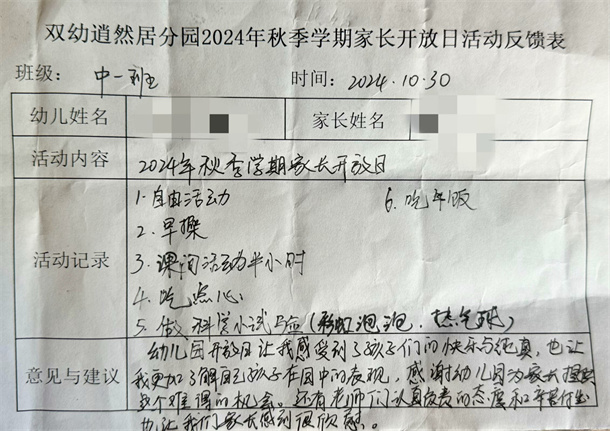 双幼逍然居分园2024年秋季学期家长开放日活动反馈表
班级: 中一班 时间: 2024.10.30
幼儿姓名 家长姓名
活动内容 2024年秋季学期家长开放日
活动记录
1.自由活动 6.吃午饭
2.早操
3.课间活动半小时
4.吃点心
5.做科学小试验(彩虹泡泡.热气球)
意见与建议
幼儿园开放日让我感受到了孩子们的快乐与纯真,也让
我更加了解自己孩子在园中的表现,感谢幼儿园为家长提供
这个难得的机会。还有老师们认真负责的态度和辛苦付出
也让我们家长感到很欣慰。